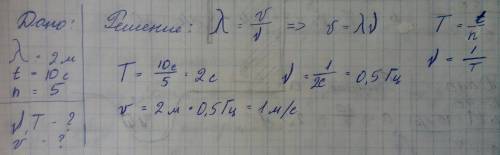 Дано:
λ = 2 м
t = 10 с
n = 5
ν, T - ?
v - ?
Решение: λ = v/ν => v = λν T = t/n
T = 10с/5 = 2с ν = 1/2с = 0,5 Гц ν = 1/T
v = 2 м • 0,5 Гц = 1 м/с